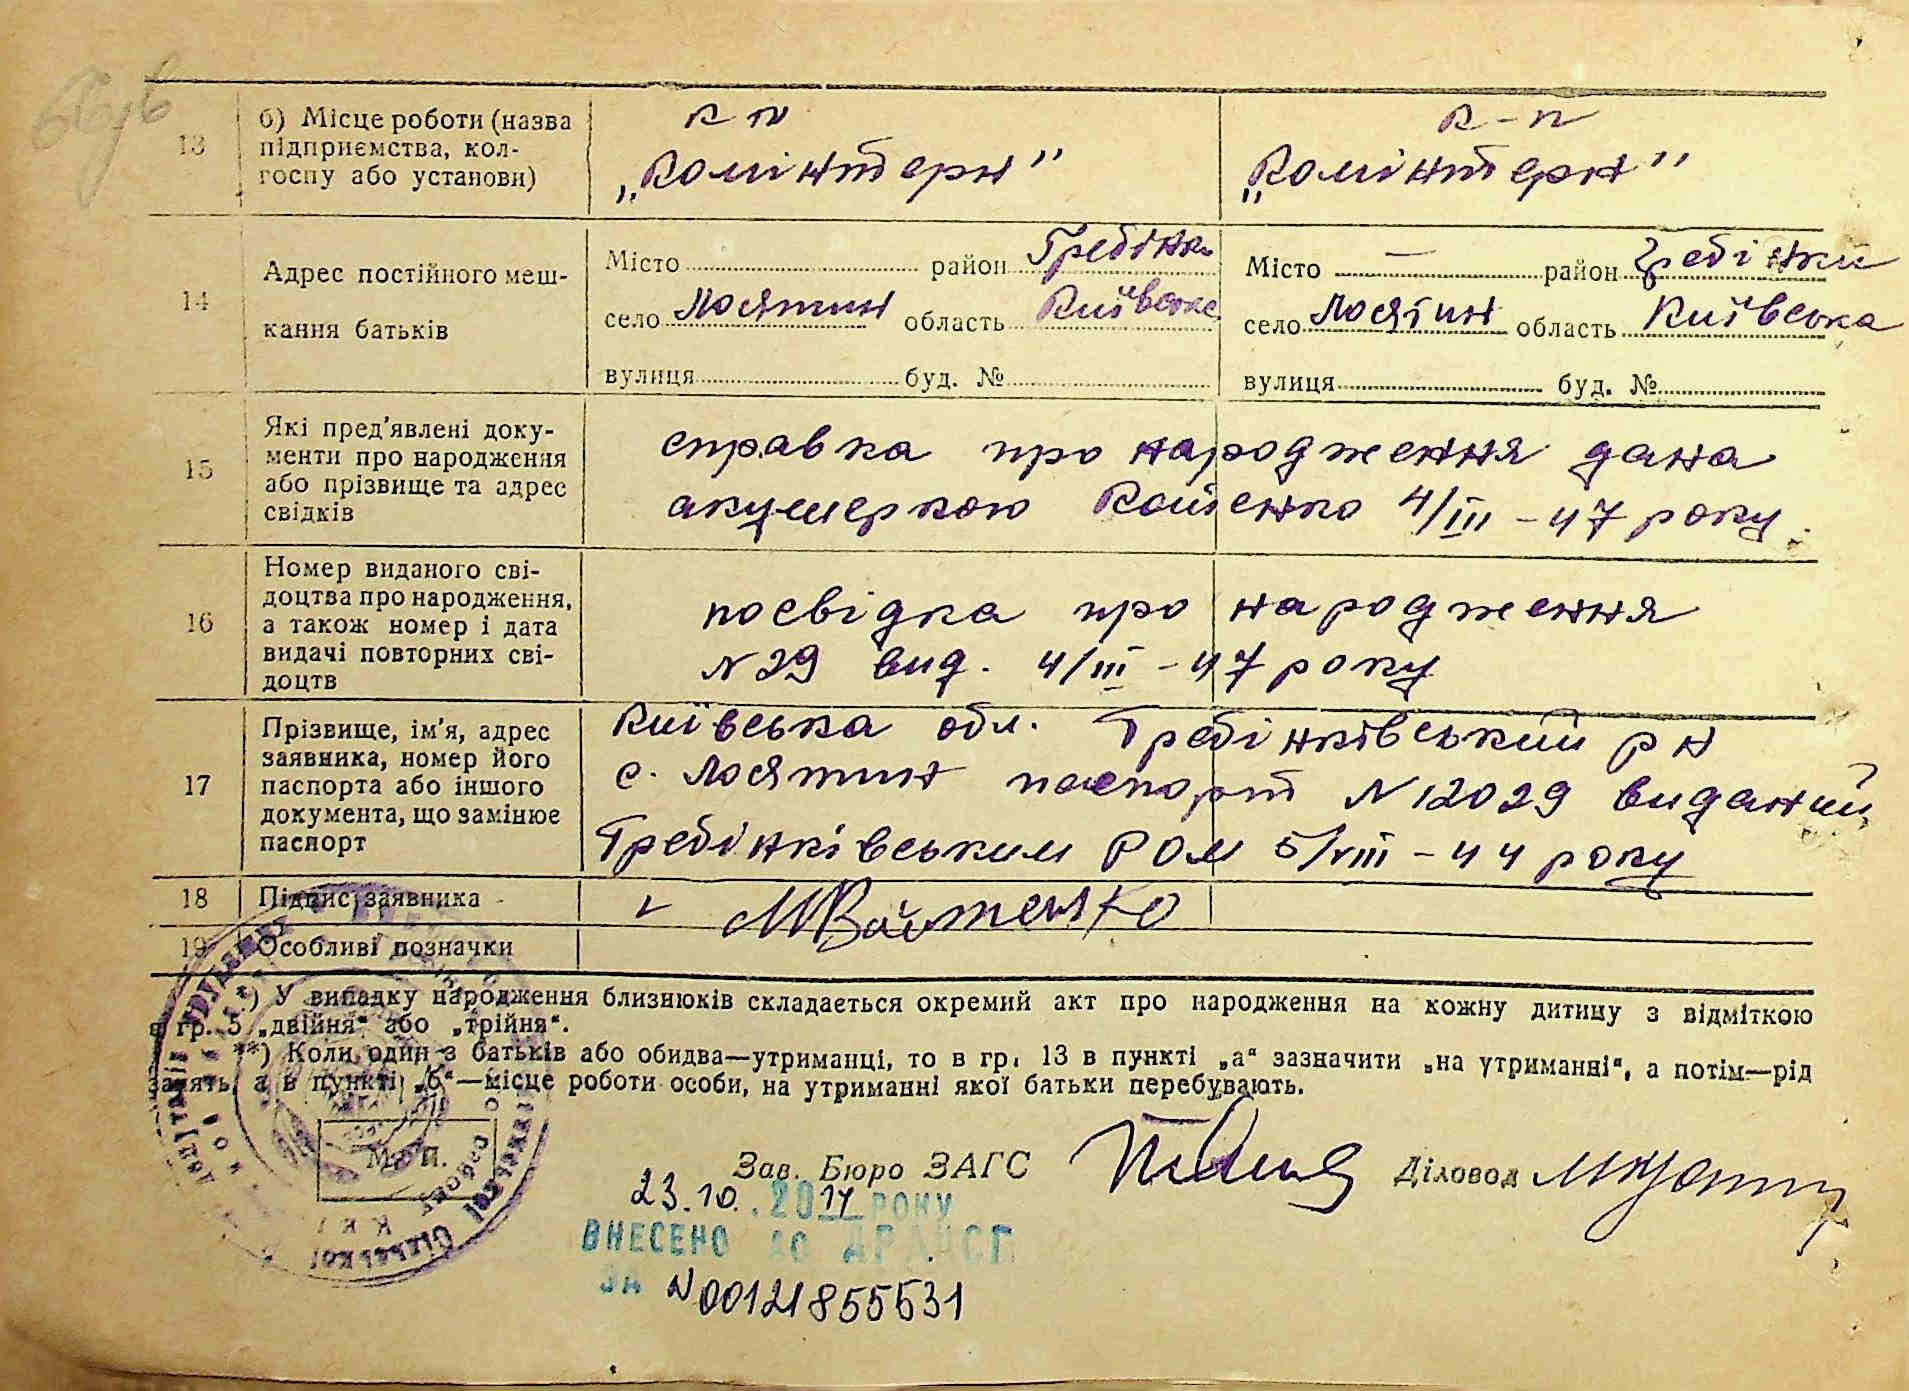 13 б) Місце роботи (назва підприємства, колгоспу або установи)
к п
к-п
„Комінтерн”
„Комінтерн”
14 Адрес постійного мешкання батьків
Місто район Гребінк
Місто — район Гребінки
село Лосятин область Київське
село Лосятин область Київська
вулиця буд. №
вулиця буд. №
15 Які пред’явлені документи про народження або прізвище та адрес свідків
справка про народження дана
акушеркою 4/III-47 року.
16 Номер виданого свідоцтва про народження, а також номер і дата видачі повторних свідоцтв
посвідка про народження
N 29 вид. 4/III-47 року
17 Прізвище, ім’я, адрес заявника, номер його паспорта або іншого документа, що замінює паспорт
Київська обл. Гребінківський р н
с. Лосятин паспорт N 12029 виданий
Гребінківським РОМ 5/VIII-44 року
18 Підпис заявника
19 Особливі позначки
*) У випадку народження близнюків складається окремий акт про народження на кожну дитину з відміткою
в гр. 5 „двійня“ або „трійня“.
**) Коли один з батьків або обидва—утриманці, то в гр. 13 в пункті „а“ зазначити „на утриманні“, а потім—рід
занять, а в пункті „б“—місце роботи особи, на утриманні якої батьки перебувають.
М. П.
Зав. Бюро ЗАГС
Діловод
23.10.2017 РОКУ
ВНЕСЕНО ДО ДРАЦСГ
ЗА N00121855531